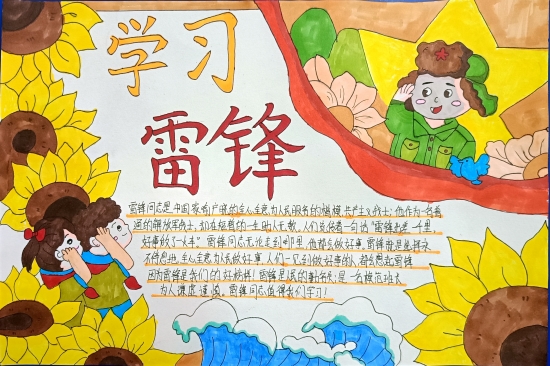 学习
雷锋
雷锋同志是中国家喻户晓的全心全意为人民服务的楷模,共产主义战士;他作为一名普
通的解放军战士,却在短暂的一生助人无数,人们流传着一句话“雷锋出差一千里
好事做了一火车”雷锋同志无论走到哪里,他都会做好事,雷锋
不停息地,全心全意为人民做好事,人们一见到做好事的人,都会想起雷锋
因为雷锋是我们的好榜样!雷锋是人民的勤务员,是一名模范班长
为人谦虚谨慎。雷锋同志值得我们学习!